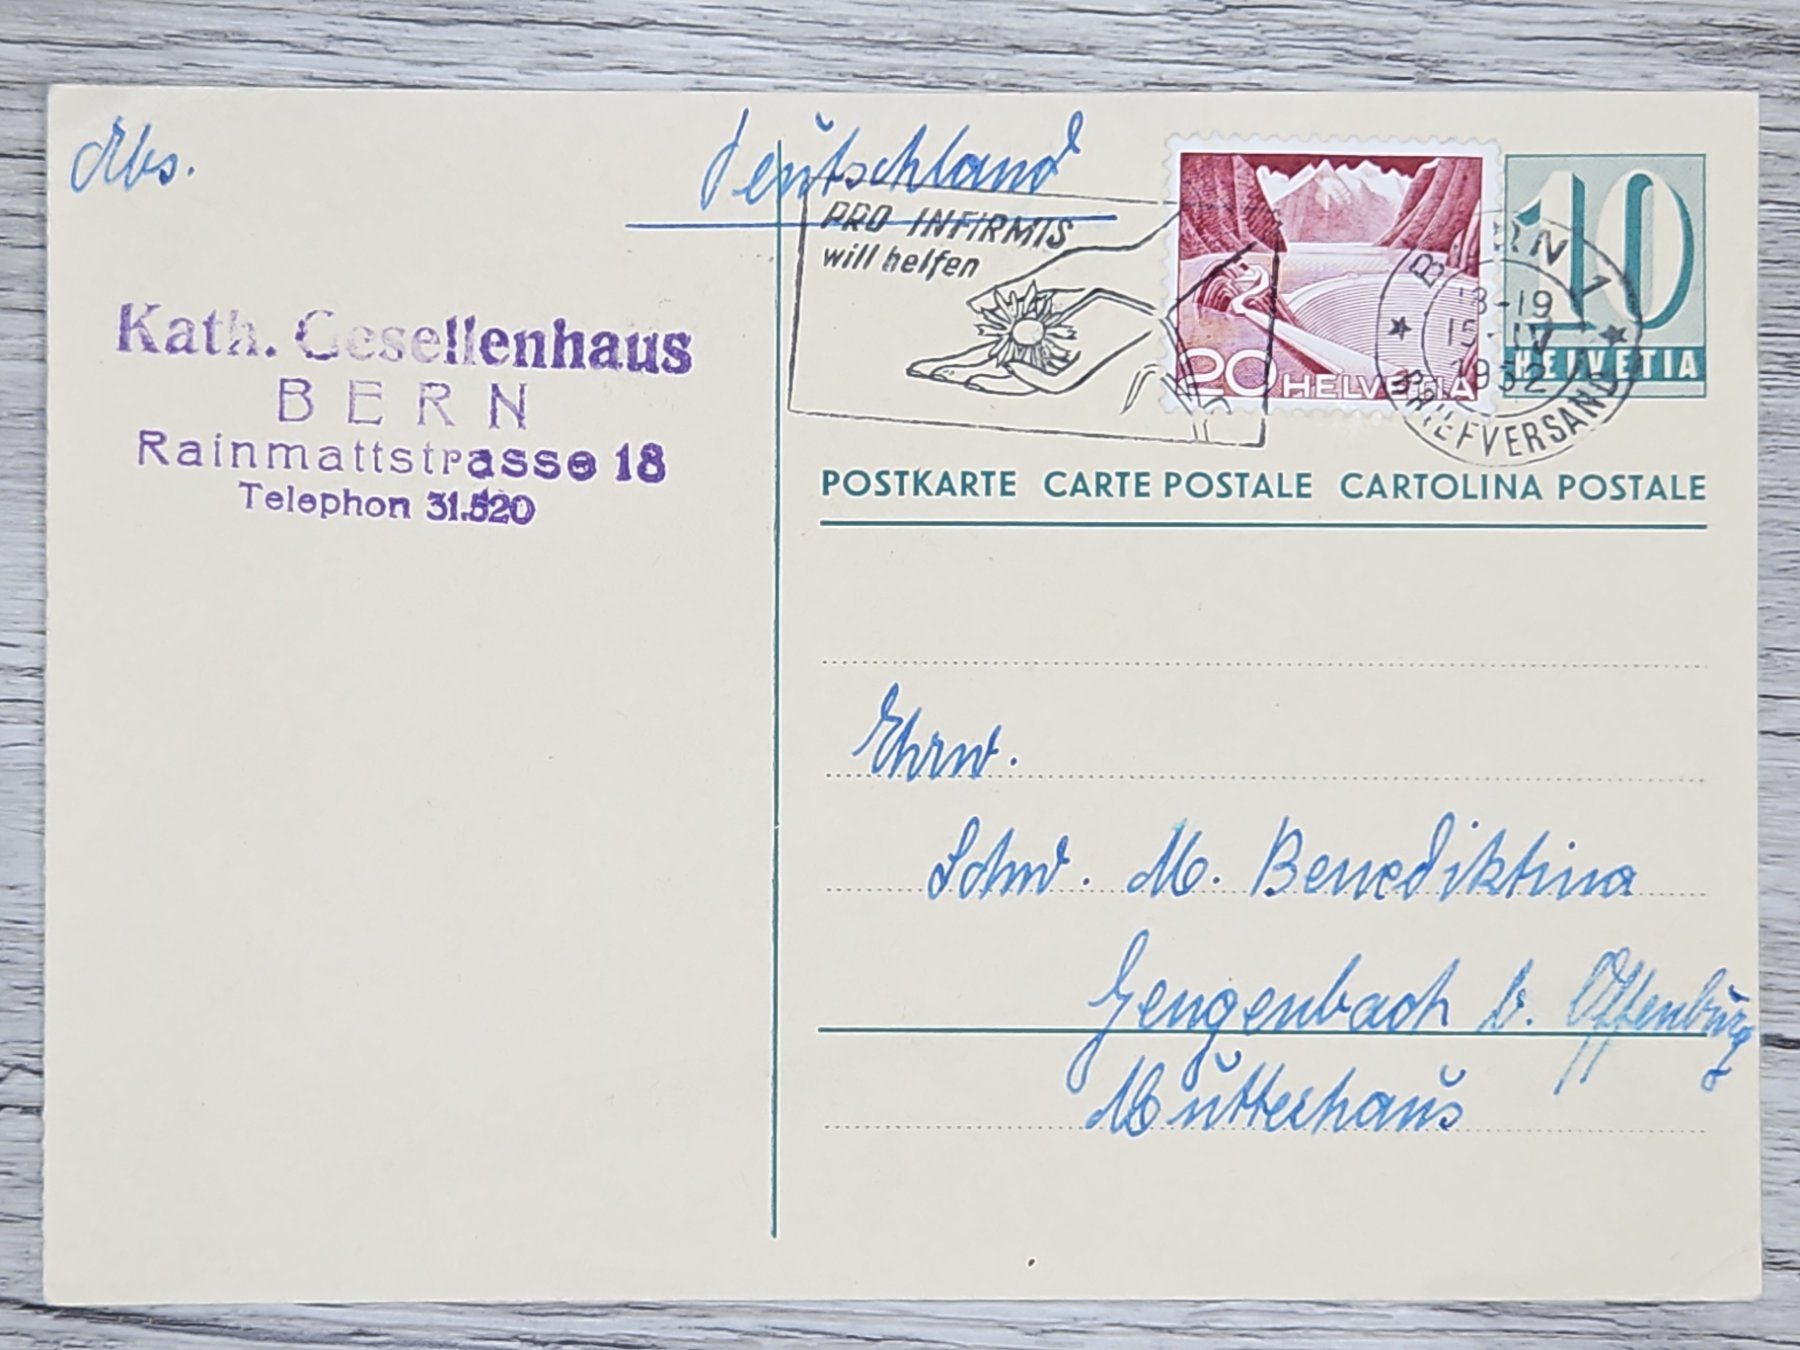 Abs.
Deutschland
PRO INFIRMIS
will helfen
20 HELVETIA
10
HELVETIA
BERN 1
18-19
15.IV
1952
BRIEFVERSAND
Kath. Gesellenhaus
BERN
Rainmattstrasse 18
Telephon 31.520
POSTKARTE CARTE POSTALE CARTOLINA POSTALE
Ehrw.
Schw. M. Benediktina
Gengenbach b. Offenburg
Mutterhaus